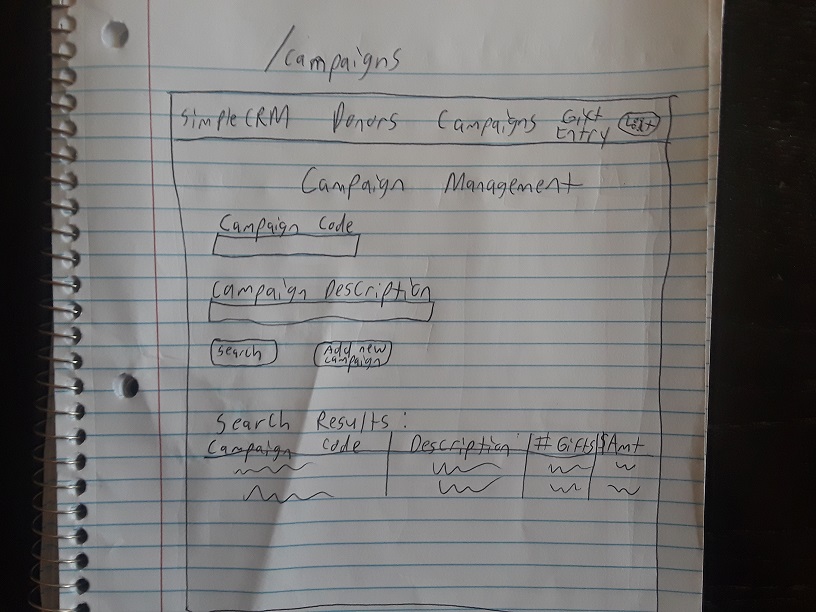 /campaigns
Simple CRM Donors Campaigns Gift Entry
Campaign Management
Campaign Code
Campaign Description
Search Add new campaign
Search Results:
Campaign Code Description # Gifts $Amt